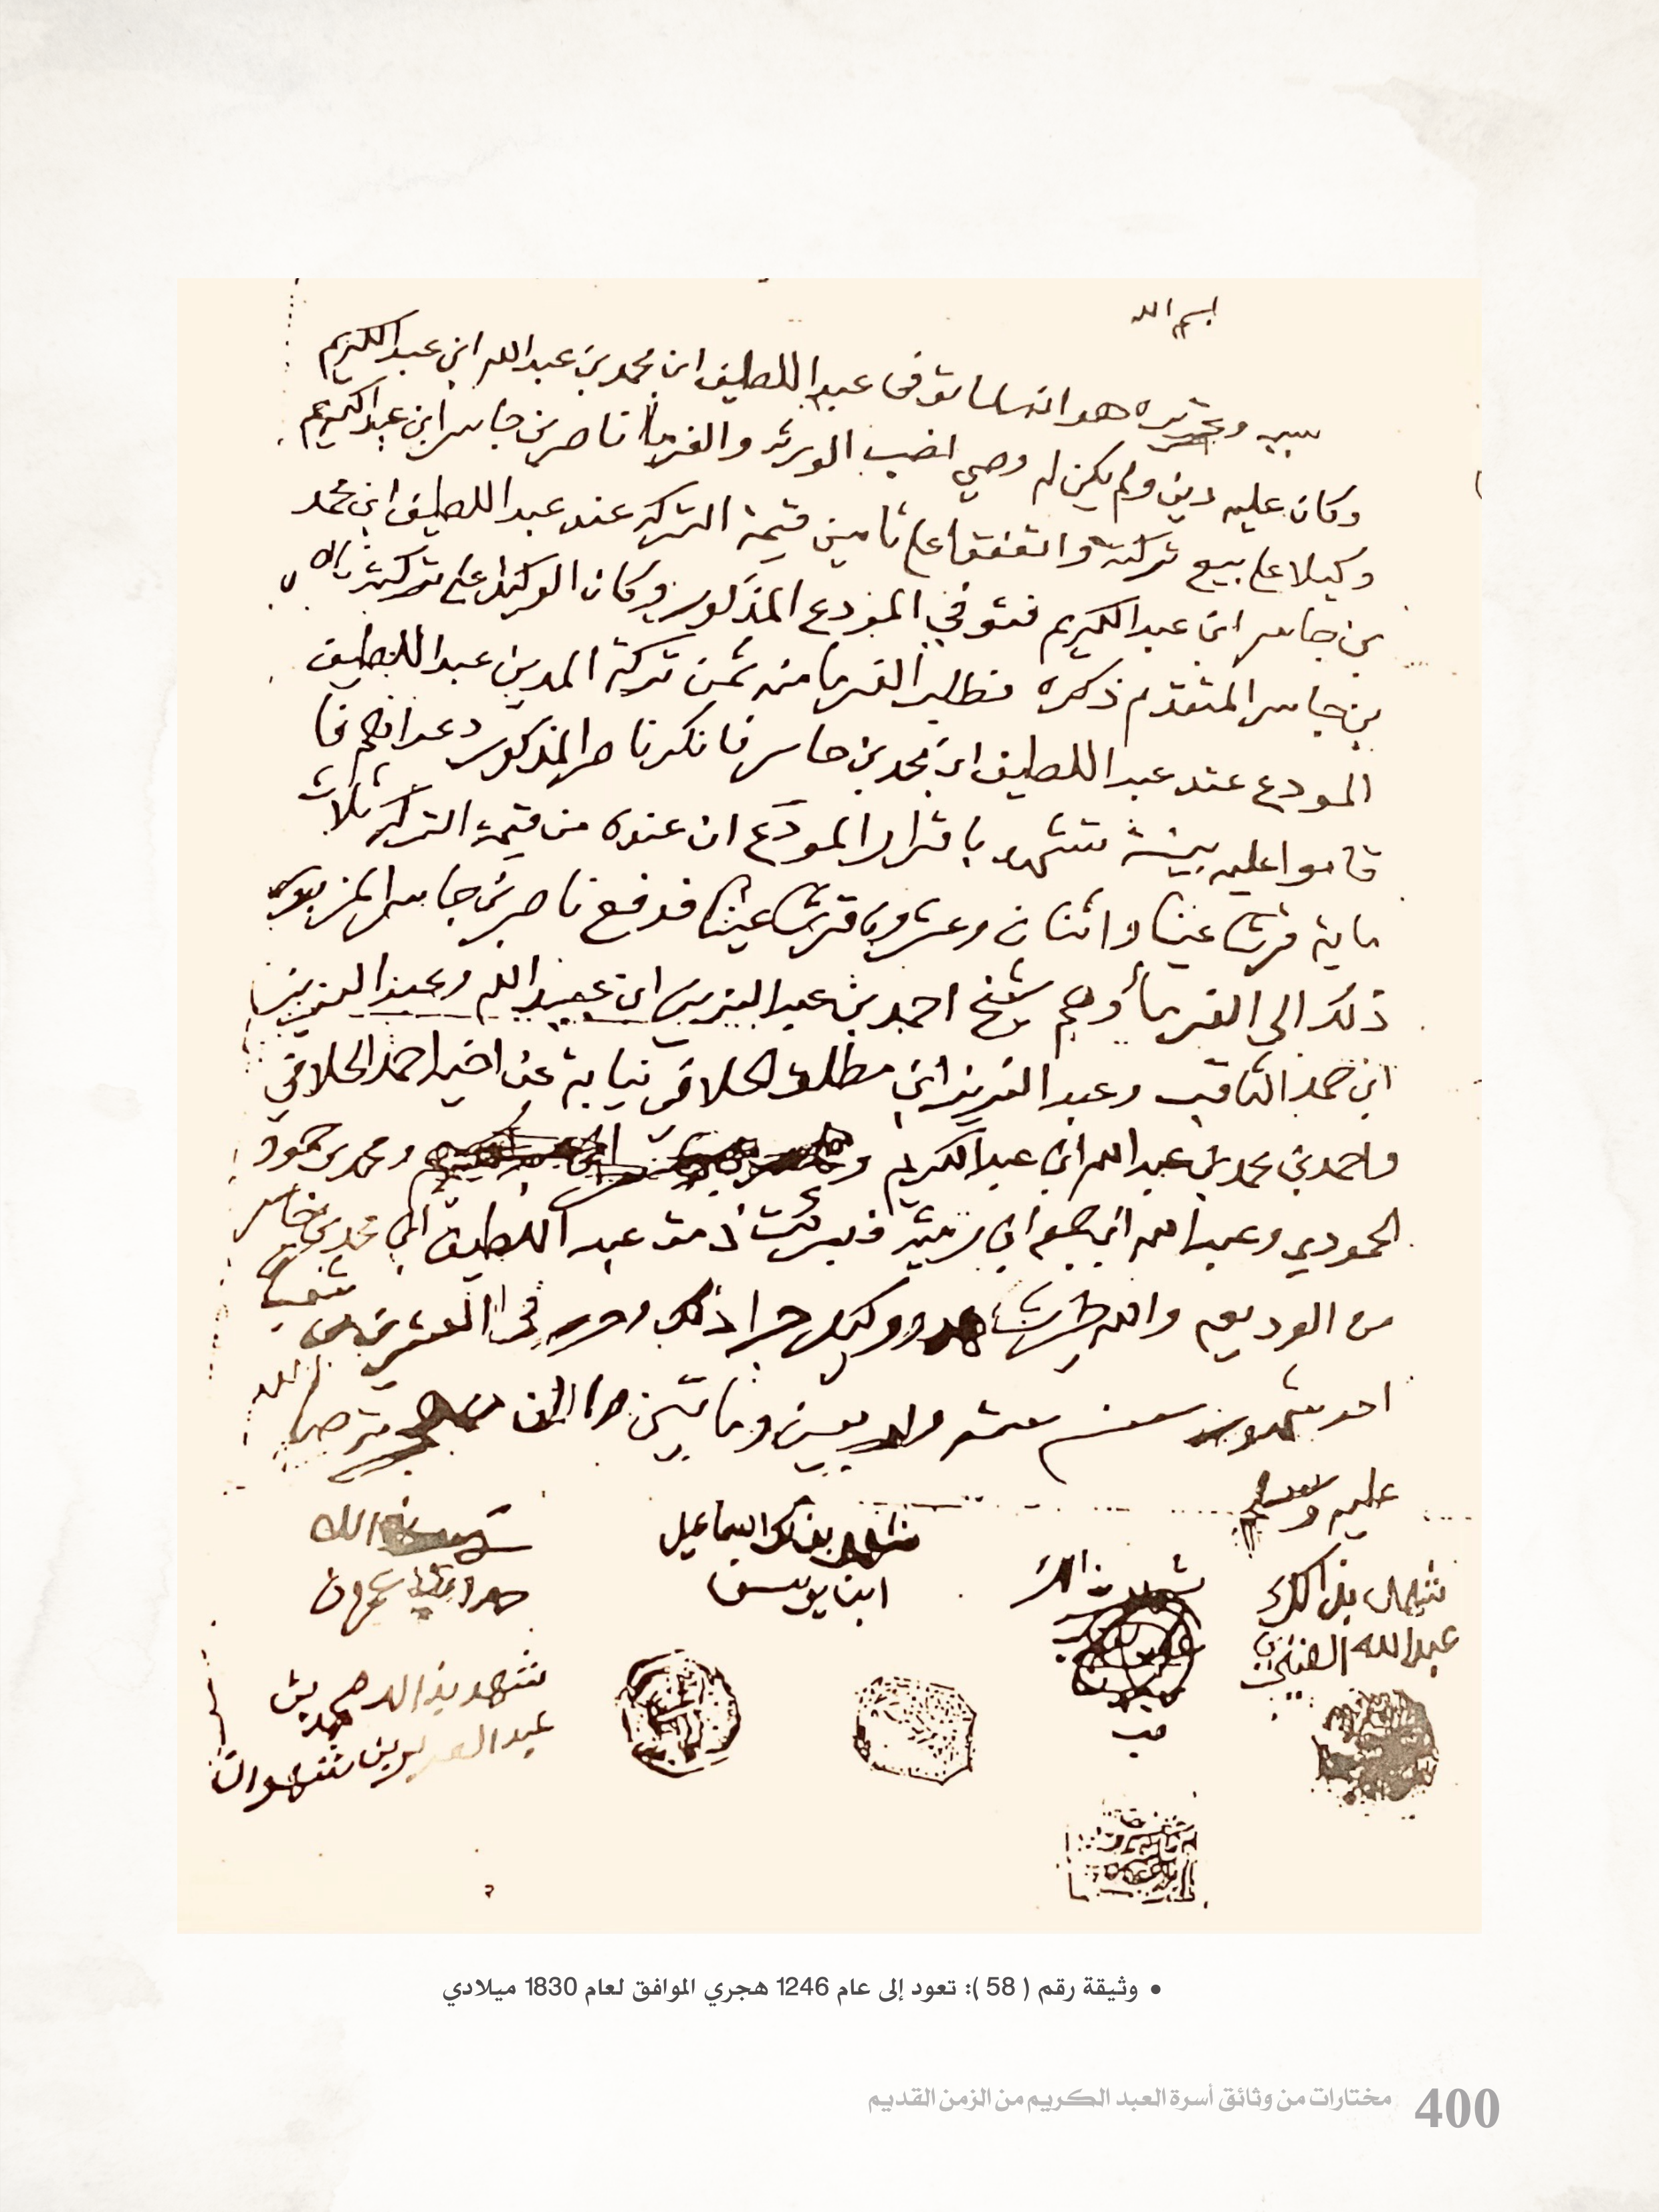 بسم الله
سبب وتحريره هو انه لما توفى عبد اللطيف ابن محمد بن عبدالله ابن عبدالكريم
وكان عليه دين ولم يكن له وصي انصب الورثه والغرما ناصر بن جاسر ابن عبدالكريم
وكيلا على بيع تركته واتفقفوا على تامين قيمة التركه عند عبد اللطيف ابن محمد
بن جاسر ابن عبد الكريم فتوفي المودع المذكور وكان الوكيل على تركته ناصر
بن جاسر المتقدم ذكره فطلب الغرما منه ثمن تركة المدين عبد اللطيف
المودع عند عبد اللطيف ابن محمد بن جاسر فانكر ناصر المذكور دعواهم فا
قاموا عليه بينة تشهد باقرار المودع ان عنده من قيمة التركه ثلاث
ماية قرشا عينا واثنان وعشرون قرشا عينا فدفع ناصر بن جاسر المزبور
ذلك الى الغرما وهم شيخ احمد بن عبد العزيز ابن عبيد الله وعبد العزيز
ابن حمد الثاقب وعبد العزيز ابن مطلق الحلافي نيابة عن اخيه احمد الحلافي
واحمد بن محمد بن عبدالله ابن عبدالكريم ومحمد بن حمود
الحمودي وعبدالله ابن جمعه ابن رميثه فبرئت ذمة عبد اللطيف ابن محمد بن جاسر
من الوديعه والله خير شاهد ووكيل جرا ذلك وحرر في العشرين من
احد شهور سنة ستة واربعين وماتين والف من هجرة من صلى الله
عليه وسلم
شهد بذالك
عبدالله
شهد بذالك
شهد بذلك اسماعيل
ابن يوسف
شهد بذالك
شهد بذالك محمد بن
عبد العزيز بن شهوان
• وثيقة رقم ( 58 ): تعود إلى عام 1246 هجري الموافق لعام 1830 ميلادي
400 مختارات من وثائق أسرة العبد الكريم من الزمن القديم